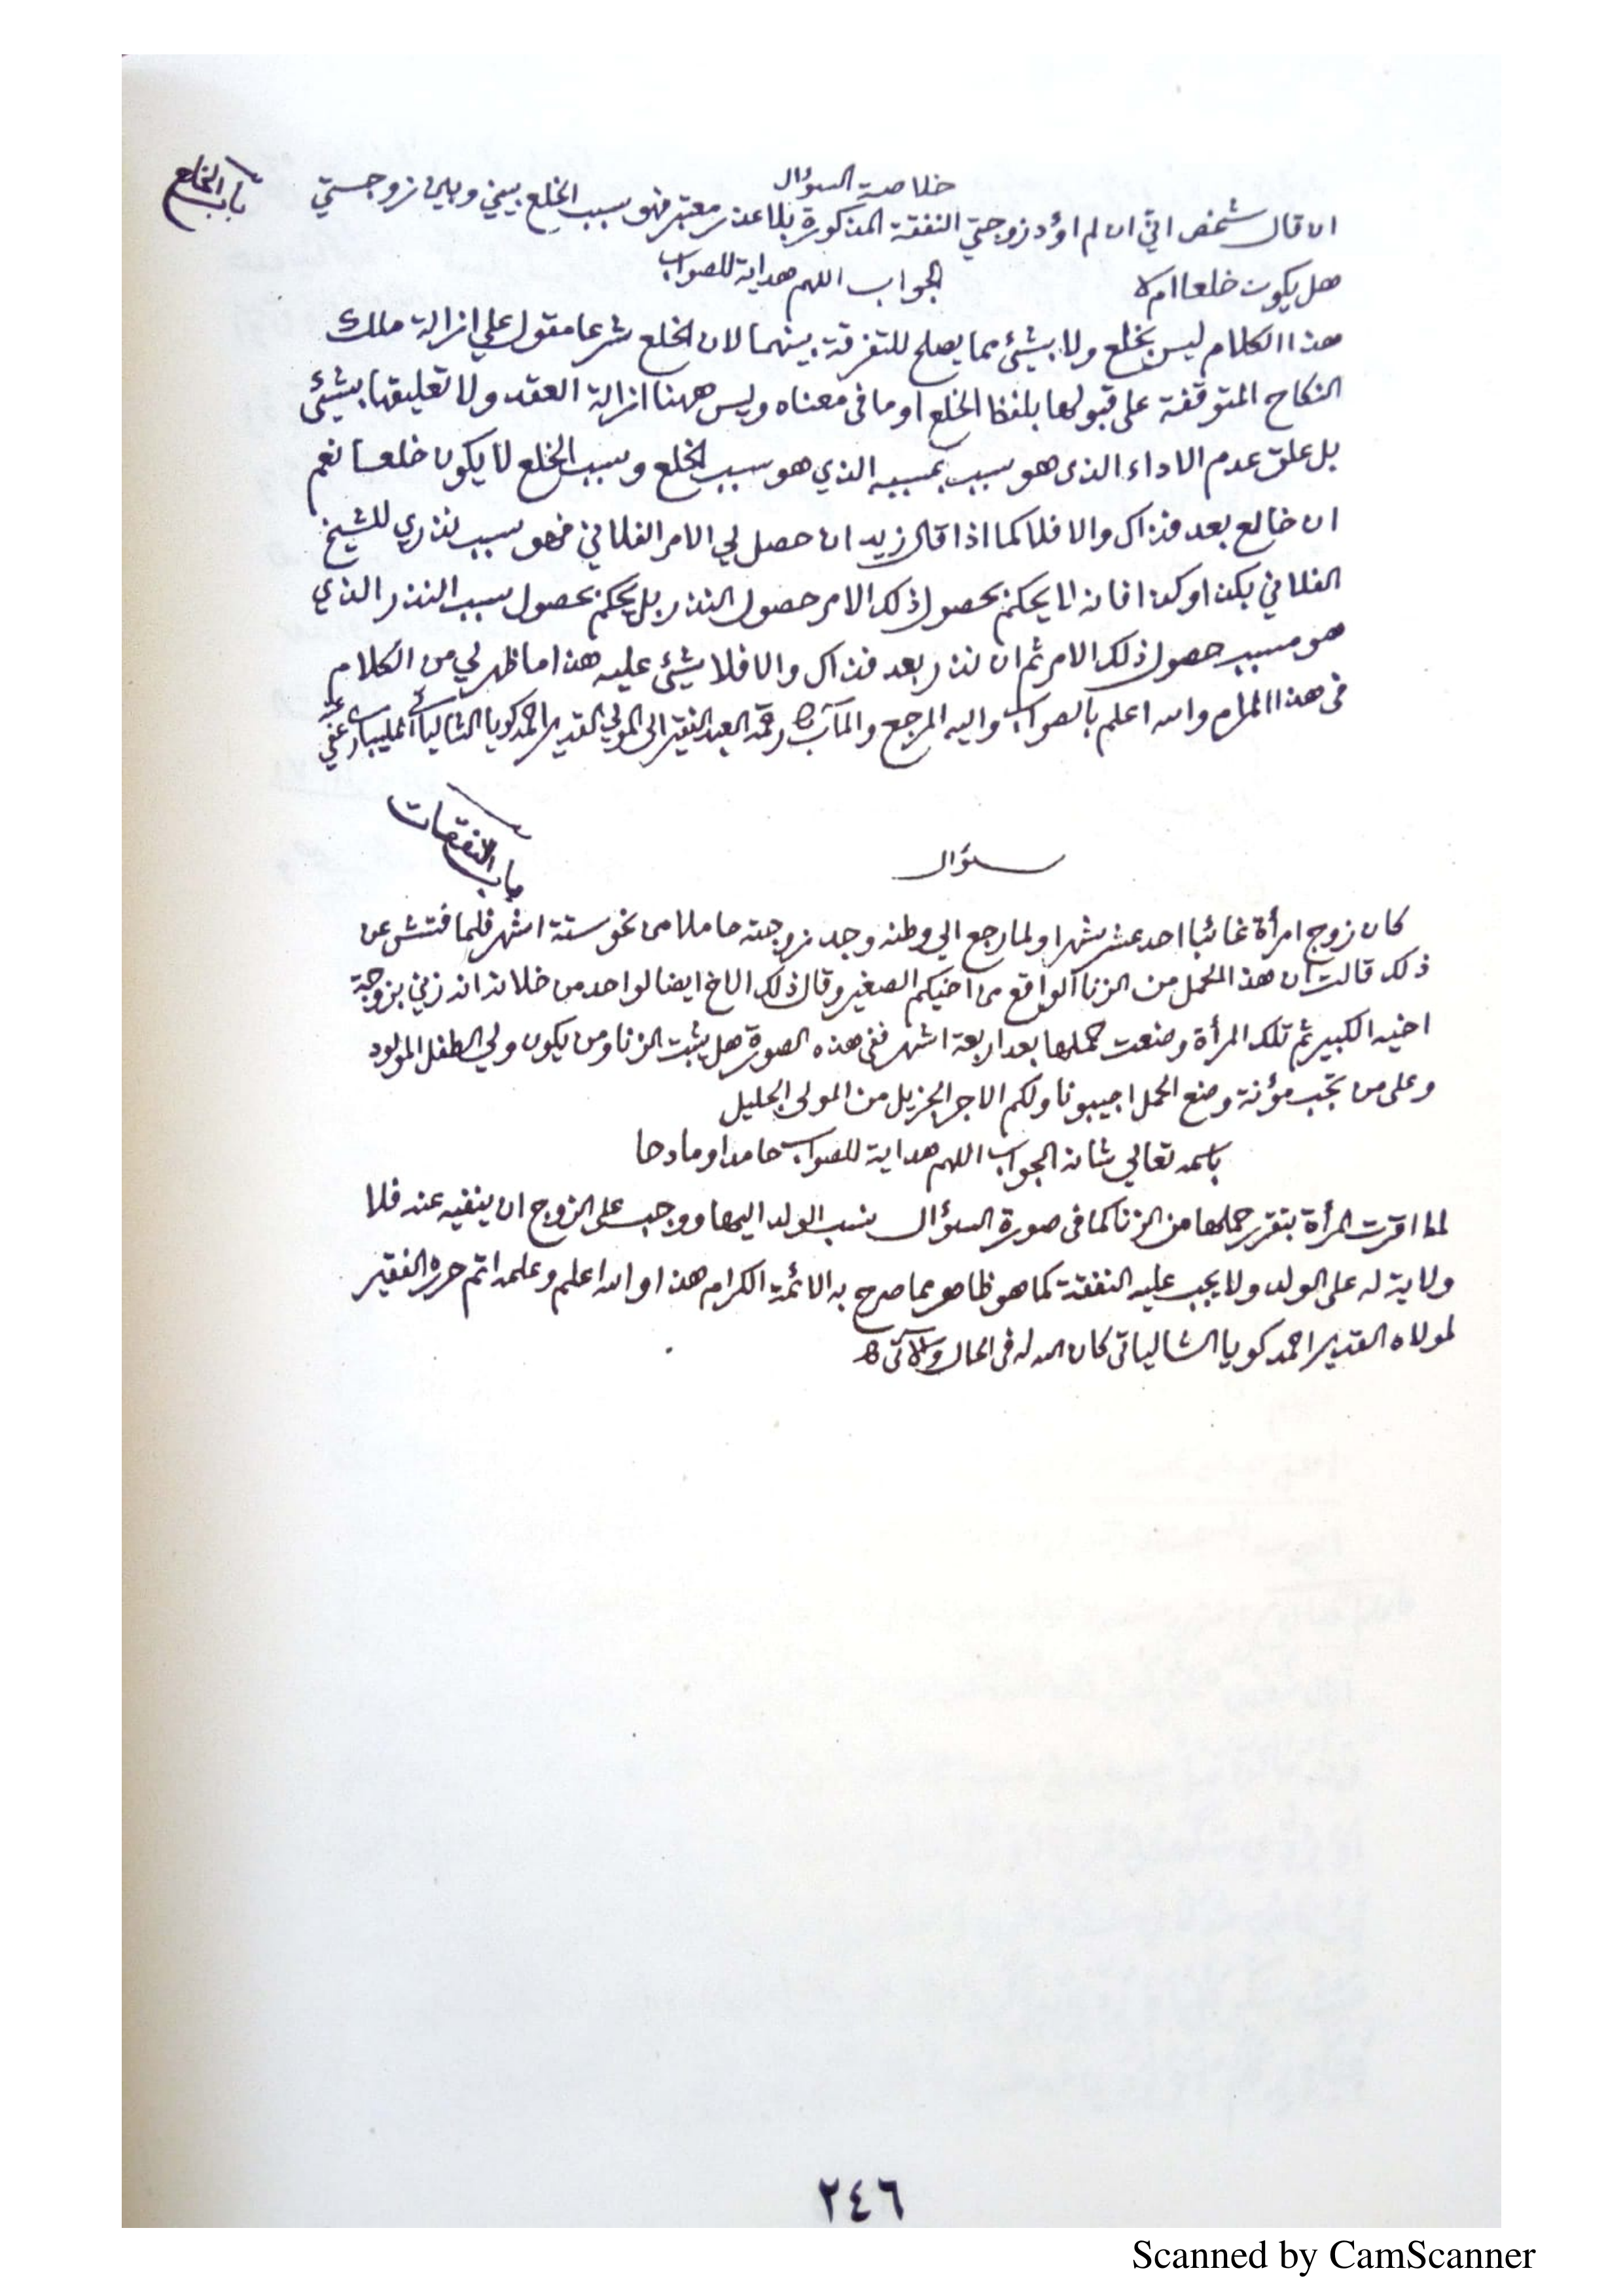 باب الخلع
خلاصة السؤال
ان قال شخص اني ان لم اؤد زوجتي النفقة المذكورة بلا عذر معتبر فهو سبب الخلع بيني وبين زوجستي
هل يكون خلعا ام لا الجواب اللهم هداية للصواب
هذا الكلام ليس بخلع ولا بشئ مما يصلح للتفرقة بينهما لان الخلع شرعا مقول علي ازالة ملك
النكاح المتوقفة على قبولها بلفظ الخلع او ما في معناه وليس ههنا ازالة العقد ولا تعليقها بشئ
بل علق عدم الاداء الذي هو سبب بمسببه الذي هو سبب الخلع وسبب الخلع لا يكون خلعا نعم
ان خالع بعد فذاك والا فلا كما اذا قال زيد ان حصل لي الامر الفلاني فهو سبب نذري للشيخ
الفلاني بكذا وكذا فانه لا يحكم بحصول ذلك الامر حصول النذر بل يحكم بحصول سبب النذر الذي
هو مسبب حصول ذلك الامر ثم ان نذر بعد فذاك والا فلا شئ عليه هذا ما ظهر لي من الكلام
في هذا المرام والله اعلم بالصواب واليه المرجع والمآب رقمه العبد الفقير الى المولي القدير احمد كويا الشالياتي المليباري عفي عنه
باب النفقات
سؤال
كان زوج امرأة غائبا احد عشر شهرا ولما رجع الي وطنه وجد زوجته حاملا من نحو ستة اشهر فلما فتش عن
ذلك قالت ان هذا الحمل من الزنا الواقع من اخيكم الصغير وقال ذلك الاخ ايضا لواحد من خلانه انه زني بزوجة
اخيه الكبير ثم تلك المرأة وضعت حملها بعد اربعة اشهر ففي هذه الصورة هل يثبت الزنا ومن يكون ولي الطفل المولود
وعلى من تجب مؤنة وضع الحمل اجيبونا ولكم الاجر الجزيل من المولى الجليل
باسمه تعالي شانه الجواب اللهم هداية للصواب حامدا ومادحا
لما اقرت المرأة بتقرر حملها من الزنا كما في صورة السؤال نسب الولد اليها ووجب على الزوج ان ينفيه عنه فلا
ولاية له على الولد ولا يجب عليه النفقة كما هو ظاهر مما صرح به الائمة الكرام هذا والله اعلم وعلمه اتم حرره الفقير
لمولاه القدير احمد كويا الشالياتي كان الله له في الحال والآتي
٢٤٦
Scanned by CamScanner